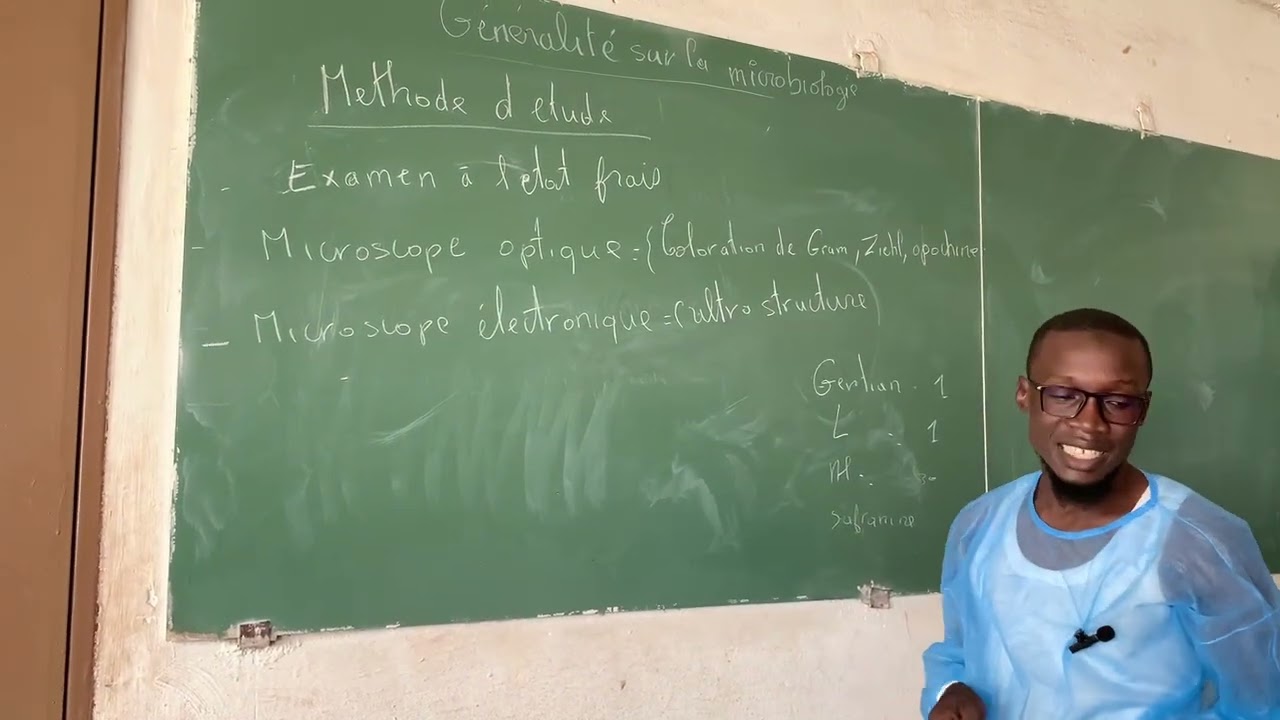 Généralité sur la microbiologie
Methode d etude
- Examen à l'état frais
- Microscope optique = (Coloration de Gram, Ziehl,
- Microscope électronique = (ultrastructure)
-
Gentian . 1
L .. 1
Al ..
safranine